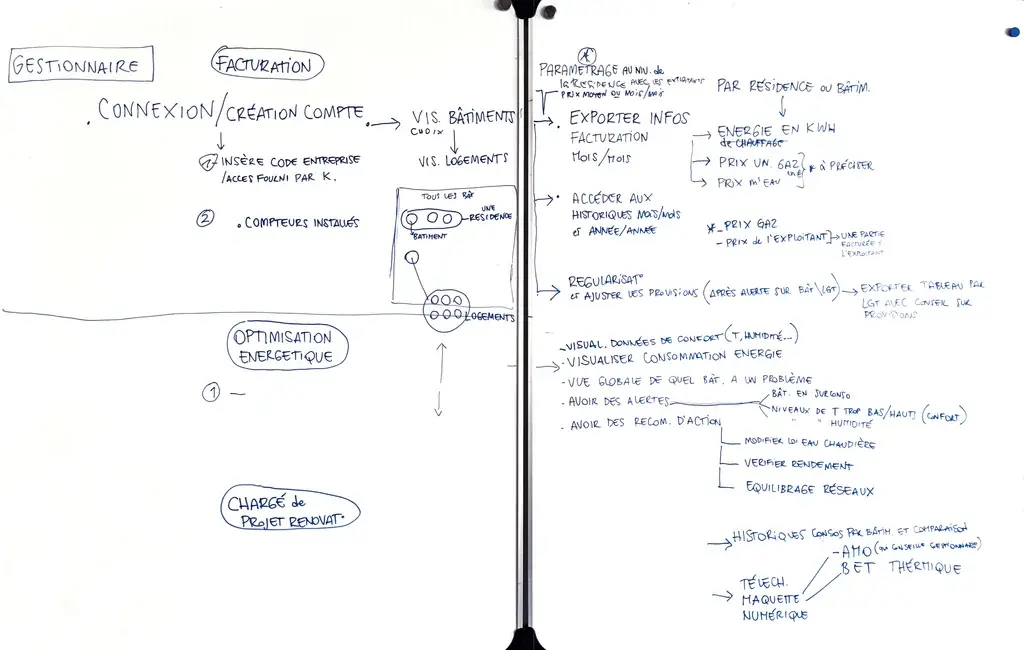 GESTIONNAIRE
FACTURATION
. CONNEXION/CRÉATION COMPTE.
VIS. BÂTIMENTS
CHOIX
VIS. LOGEMENTS
1 INSÈRE CODE ENTREPRISE
/ACCES FOURNI PAR K.
2 . COMPTEURS INSTALLÉS
TOUS LES BÂT
UNE
RESIDENCE
BATIMENT
LOGEMENTS
OPTIMISATION
ENERGETIQUE
1 —
CHARGÉ de
PROJET RENOVAT°
*
PARAMETRAGE AU NIV. de
la RESIDENCE AVEC LES EXPLOITANTS
PRIX MOYEN OU MOIS/MOIS
PAR RÉSIDENCE OU BÂTIM.
. EXPORTER INFOS
FACTURATION
MOIS/MOIS
ENERGIE EN KWH
de CHAUFFAGE
PRIX UN. GAZ
PRIX m³ EAU
* à PRÉCISER
. ACCÉDER AUX
HISTORIQUES MOIS/MOIS
et ANNÉE/ANNÉE
* - PRIX GAZ
- PRIX de l'EXPLOITANT
UNE PARTIE
FACTURÉE
L'EXPLOITANT
REGULARISAT°
et AJUSTER LES PROVISIONS (APRÈS ALERTE SUR BÂT\LGT)
EXPORTER TABLEAU PAR
LGT AVEC CONSEIL SUR
PROVISIONS
- VISUAL. DONNÉES DE CONFORT (T, HUMIDITÉ...)
- VISUALISER CONSOMMATION ENERGIE
- VUE GLOBALE DE QUEL BÂT. A UN PROBLÈME
- AVOIR DES ALERTES
BÂT. EN SURCONSO
NIVEAUX DE T TROP BAS/HAUTS (CONFORT)
" " HUMIDITÉ
- AVOIR DES RECOM. D'ACTION
MODIFIER LOI EAU CHAUDIÈRE
VERIFIER RENDEMENT
EQUILIBRAGE RÉSEAUX
HISTORIQUES CONSOS PAR BÂTIM. ET COMPARAISON
- AMO (OU CONSEILLE GESTIONNAIRE)
BET THÉRMIQUE
TÉLECH.
MAQUETTE
NUMÉRIQUE